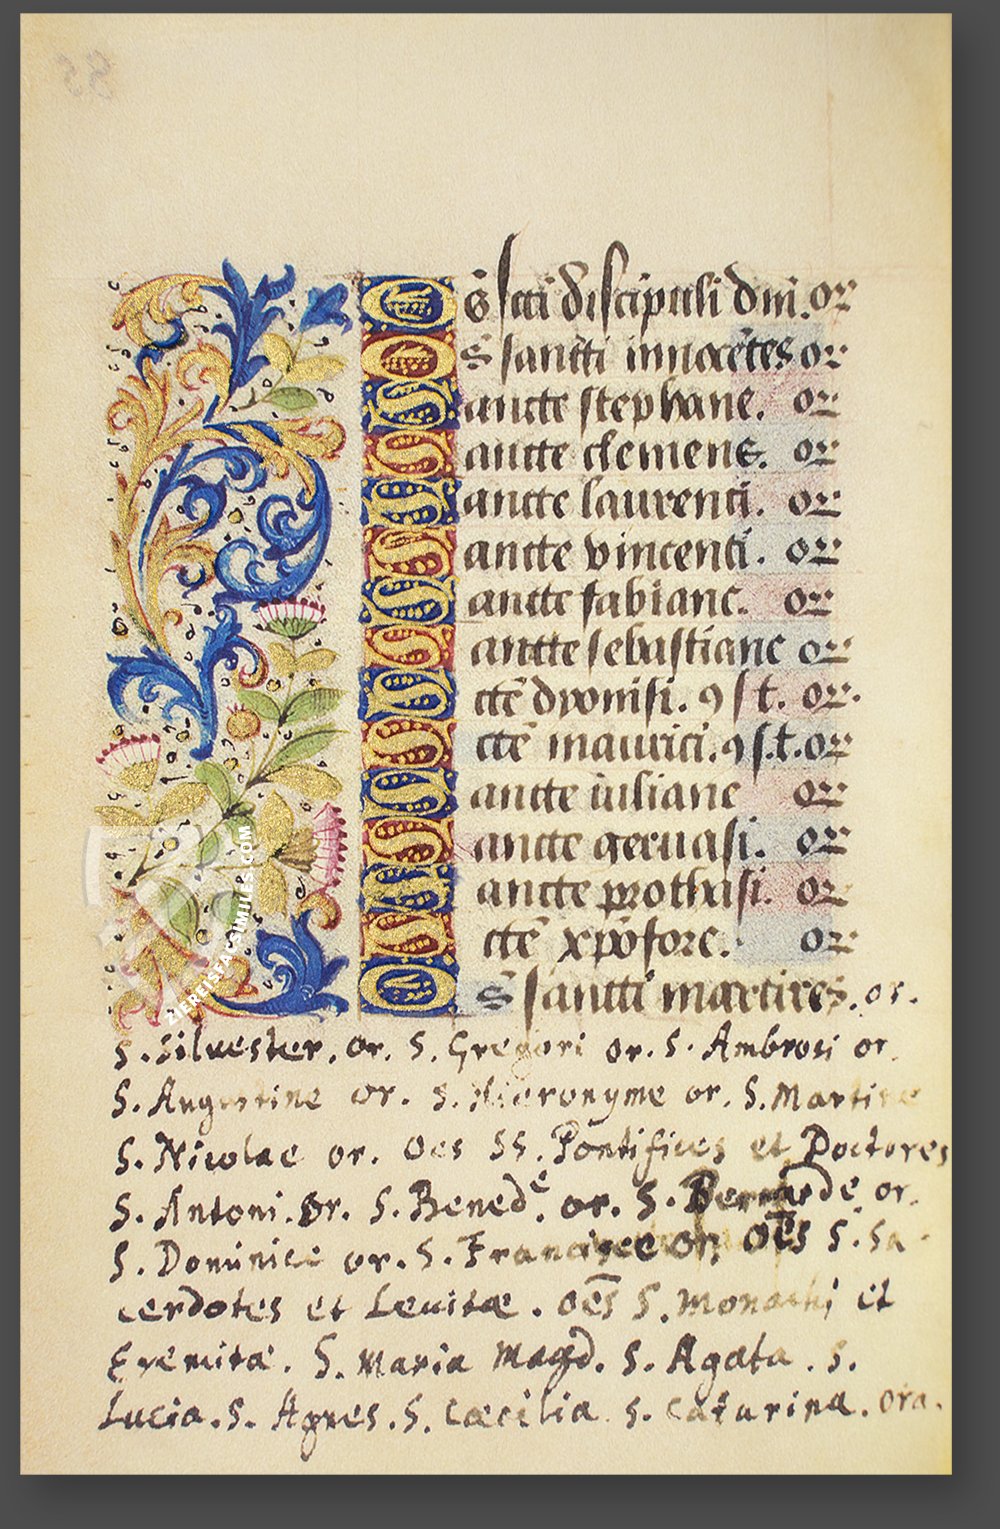 Oēs sc̄ti discipuli dn̄i. or
Oēs sancti innocētes or
Sancte stephane. or
Sancte clemens. or
Sancte laurenti. or
Sancte vincenti. or
Sancte fabiane. or
Sancte sebastiane or
Scte dyonisi. 9 s t. or.
Scte maurici. 9 s. t. or
Sancte iuliane or
Sancte geruasi. or
Sancte prothasi. or
Scte xpōfore. or
Oēs sancti martires. or.
S. Siluester. or. S. Gregori or. S. Ambrosi or.
S. Augustine or. S. Hieronyme or. S. Martine
S. Nicolae or. Oēs SS. Pontifices et Doctores
S. Antoni. Or. S. Bened^e. or. S. Bernarde or.
S. Dominice or. S. Francisce or, Oēs S. Sa-
cerdotes et Leuitæ. Oēs S. Monachi et
Eremitæ. S. Maria Magd. S. Agata. S.
Lucia. S. Agnes. S. Cæcilia. S. Catarina. ora.
AEREISFACSIMILES.COM